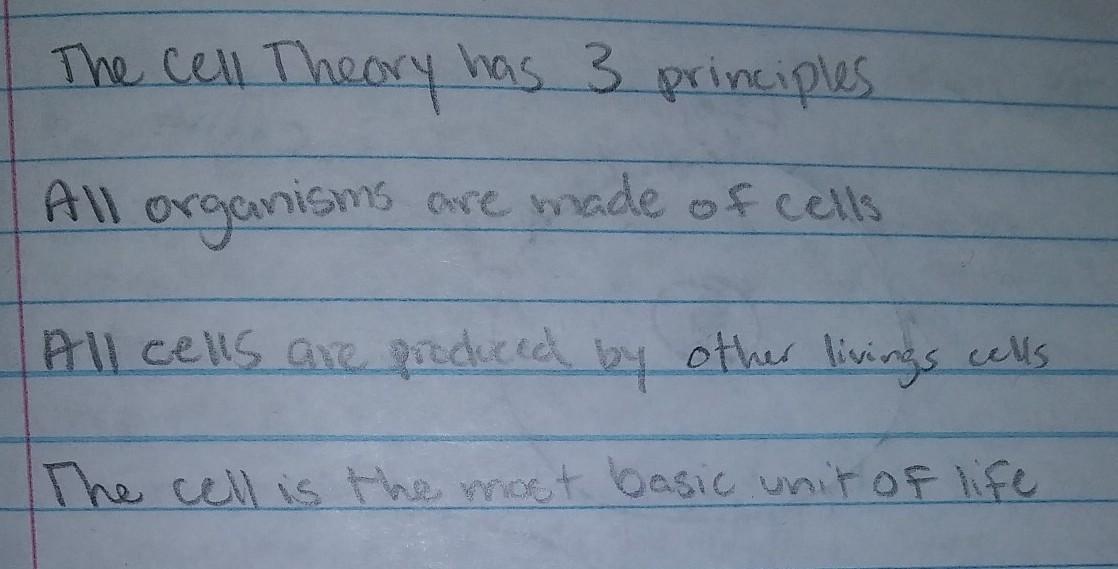 The Cell Theory has 3 principles
All organisms are made of cells
All cells are produced by other livings cells
The cell is the most basic unit of life